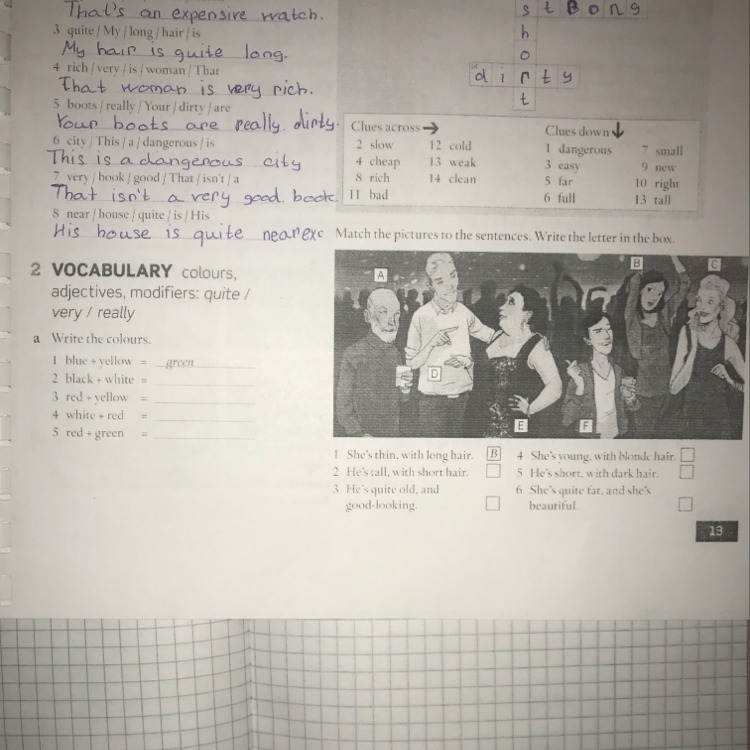 That's an expensive watch.
3 quite / My / long / hair / is
My hair is quite long.
4 rich / very / is / woman / That
That woman is very rich.
5 boots / really / Your / dirty / are
Your boots are really dirty.
6 city / This / a / dangerous / is
This is a dangerous city
7 very / book / good / That / isn't / a
That isn't a very good book.
8 near / house / quite / is / His
His house is quite near
2 VOCABULARY colours,
adjectives, modifiers: quite /
very / really
a Write the colours.
1 blue + yellow = green
2 black + white =
3 red + yellow =
4 white + red =
5 red + green =
stBong
h
o
dirty
t
Clues across →
2 slow
4 cheap
8 rich
11 bad
12 cold
13 weak
14 clean
Clues down ↓
1 dangerous
3 easy
5 far
6 full
7 small
9 new
10 right
13 tall
exc Match the pictures to the sentences. Write the letter in the box.
A
B
C
D
E
F
1 She's thin, with long hair. B
2 He's tall, with short hair.
3 He's quite old, and
good-looking.
4 She's young, with blonde hair.
5 He's short, with dark hair.
6 She's quite fat, and she's
beautiful.
13